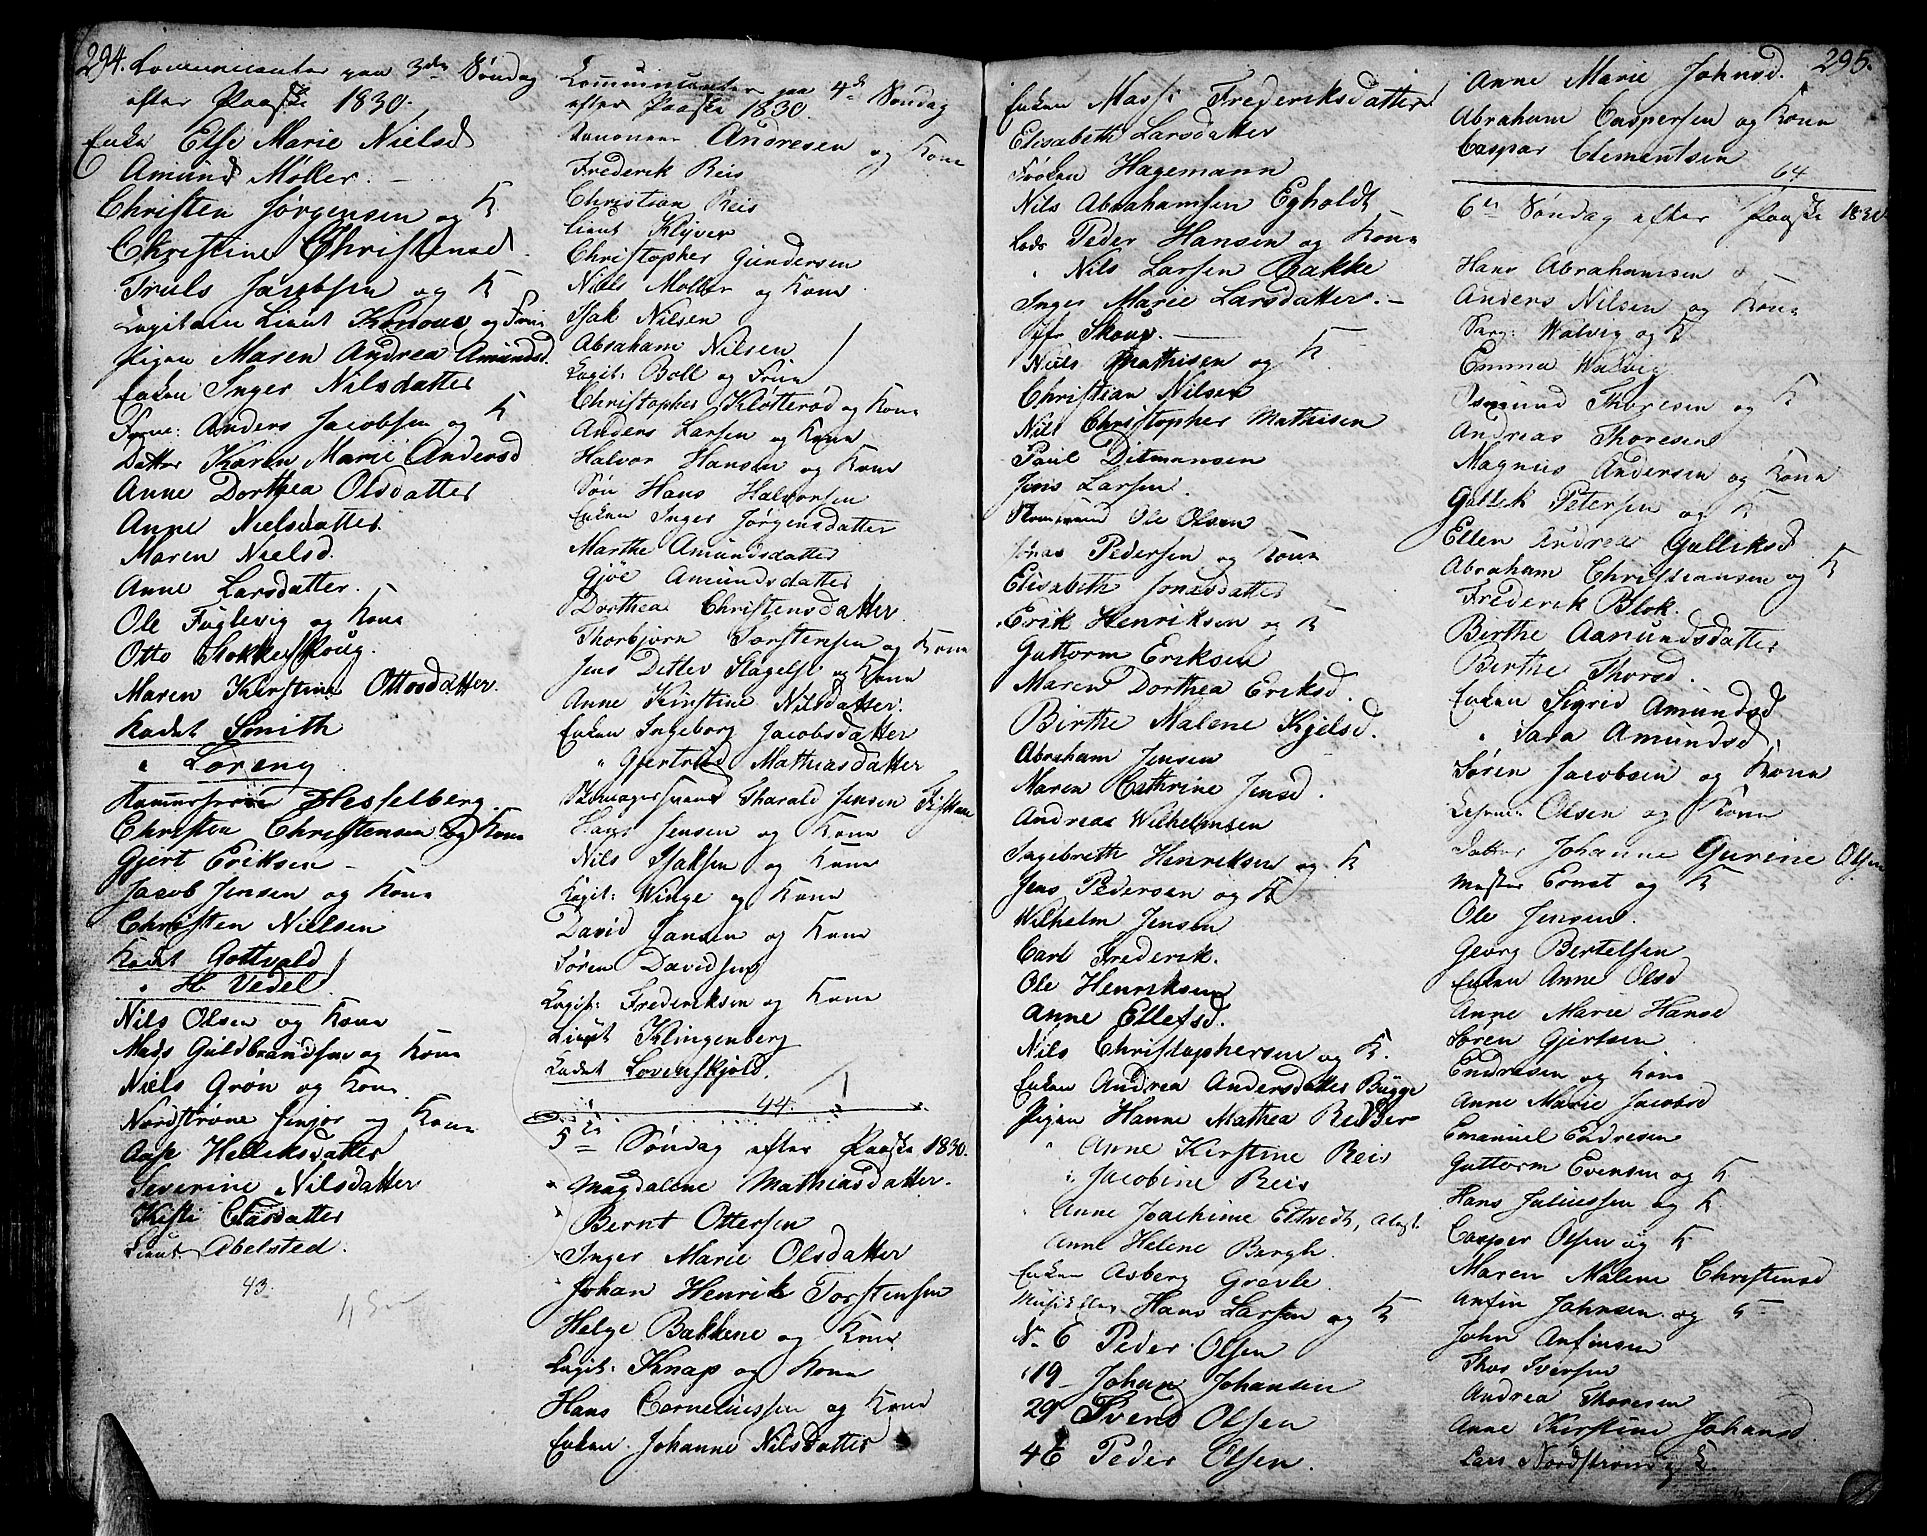 294. Communicanter paa 3die Søndag
efter Paaske 1830.
Enke Else Marie Nielsd
Amund Møller. —
Christen Jørgensen og K
Christine Christensd.
Truls Jacobsen og K
Capitain Lieut Konow og Frue
Pigen Maren Andrea Amundsd.
Enken Inger Nilsdatter
Anders Jacobsen og K
Datter Karen Marie Andersd
Anne Dorthea Olsdatter
Anne Nielsdatter.
Maren Nielsd.
Anne Larsdatter.
Ole Fuglevig og Kone
Otto Stokkeskoug.
Maren Kirstine Ottosdatter.
Kadet Smith
" Loreng
Hesselberg.
Christen Christensen og Kone
Gjert Eriksen —
Jacob Jensen og Kone
Christen Nielsen
Kadet Gottvald
" H. Vedel
Nils Olsen og Kone
Mads Guldbrandsen og Kone
Niels Grøn og Kone
Nordstrøne senjor og Kone
Aase Helleksdatter
Severine Nilsdatter
Kisti Clasdatter
Lieut Abelsted.
43.
Communicanter paa 4de Søndag
efter Paaske 1830.
Kanoneer Andresen og Kone
Frederik Reis
Christian Reis
Lieut Klyver
Christopher Gundersen
Niels Møller og Kone
Isak Nilsen
Abraham Nilsen
Capit: Boll og Frue
Christopher Klosterød og Kone
Anders Larsen og Kone
Halvor Hansen og Kone
Søn Hans Halvorsen
Enken Inger Jørgensdatter
Marthe Amundsdatter
Gjøe Amundsdatter
Dorthea Christensdatter.
Thorbjørn Torstensen og Kone
Jens Detlev Slagelse og Kone
Anne Kirstine Nilsdatter.
Enken Ingeborg Jacobsdatter
" Gjertrud Mathiasdatter
Skomagersvend Tharald Jensen
Hans Jensen og Kone
Nils Isaksen og Kone
Capit: Winge og Kone
David Jansen og Kone
Søren Davidsen
Capit: Frederiksen og Kone
Lieut Klingenberg
Cadet Lovenskjold.
44.
5te Søndag efter Paaske 1830.
Magdalene Mathiasdatter.
Bernt Ottersen
Inger Marie Olsdatter
Johan Henrik Torstensen
Helge Bakkene og Kone
Capit: Knap og Kone
Hans Corneliussen og Kone
Enken Johanne Nilsdatter
Enken Massi Frederiksdatter
Elisabeth Larsdatter
Frøken Hagemann
Nils Abrahamsen Egholdt
Lods Peder Hansen og Kone
" Nils Larsen Bakke
Inger Marie Larsdatter. —
Jfr Skoug. —
Niels Mathisen og K
Christian Nilsen
Nils Christopher Mathisen
Paul Ditmansen
Jens Larsen.
Ole Olsen
Jonas Pedersen og Kone
Elisabeth Jonasdatter
Erik Henriksen og K
Guttorm Eriksen
Maren Dorthea Eriksd.
Birthe Malene Kjelsd.
Abraham Jensen
Maren Cathrine Jensd.
Andreas Wilhelmsen
Ingebreth Henriksen og K
Jens Pedersen og K
Wilhelm Jensen
Carl Frederik.
Ole Henriksen
Anne Ellefsd.
Nils Christophersen og K.
Enken Andrea Andersdatter Bugge
Pigen Hanne Mathea Redder
" Anne Kirstine Reis
" Jacobine Reis
" Anne Joachime Eltvedt,
Anne Helene Bergh.
Enken Asberg Grevle
Hans Larsen og K
No 6 Peder Olsen
19 — Johan Johansen
29 Svend Olsen
46 Peder Olsen.
295.
Anne Marie Johnsd.
Abraham Caspersen og Kone
Caspar Clementsen
64
6te Søndag efter Paaske 1830
Hans Abrahamsen
Anders Nilsen og Kone
Serg: Walvig og K
Emma Walvig
Osmund Thoresen og K
Andreas Thoresen
Magnus Andersen og Kone
Gullik Petersen og K
Ellen Andrea Gulliksd
Abraham Christiansen og K
Frederik Blok.
Birthe Aamundsdatter
Berthe Thorsd.
Enken Sigrid Amundsd
" Sara Amundsd,
Søren Jacobsen og Kone
Olsen og Kone
Datter Johanne Gurine Olsen
Mester Ernst og K
Ole Jensen.
Georg Bertelsen
Enken Anne Olsd
Anne Marie Hansd
Søren Gjertsen
Endresen og Kone
Anne Marie Jacobsd
Emanuel Endresen
Guttorm Evensen og K
Hans Juliussen og K
Casper Olsen og K
Maren Malene Christensd
Anfin Johnsen og K
John Anfinsen
Thos Iversen
Andrea Thoresen
Anne Kirstine Johansd.
Lars Nordstrøm og K.